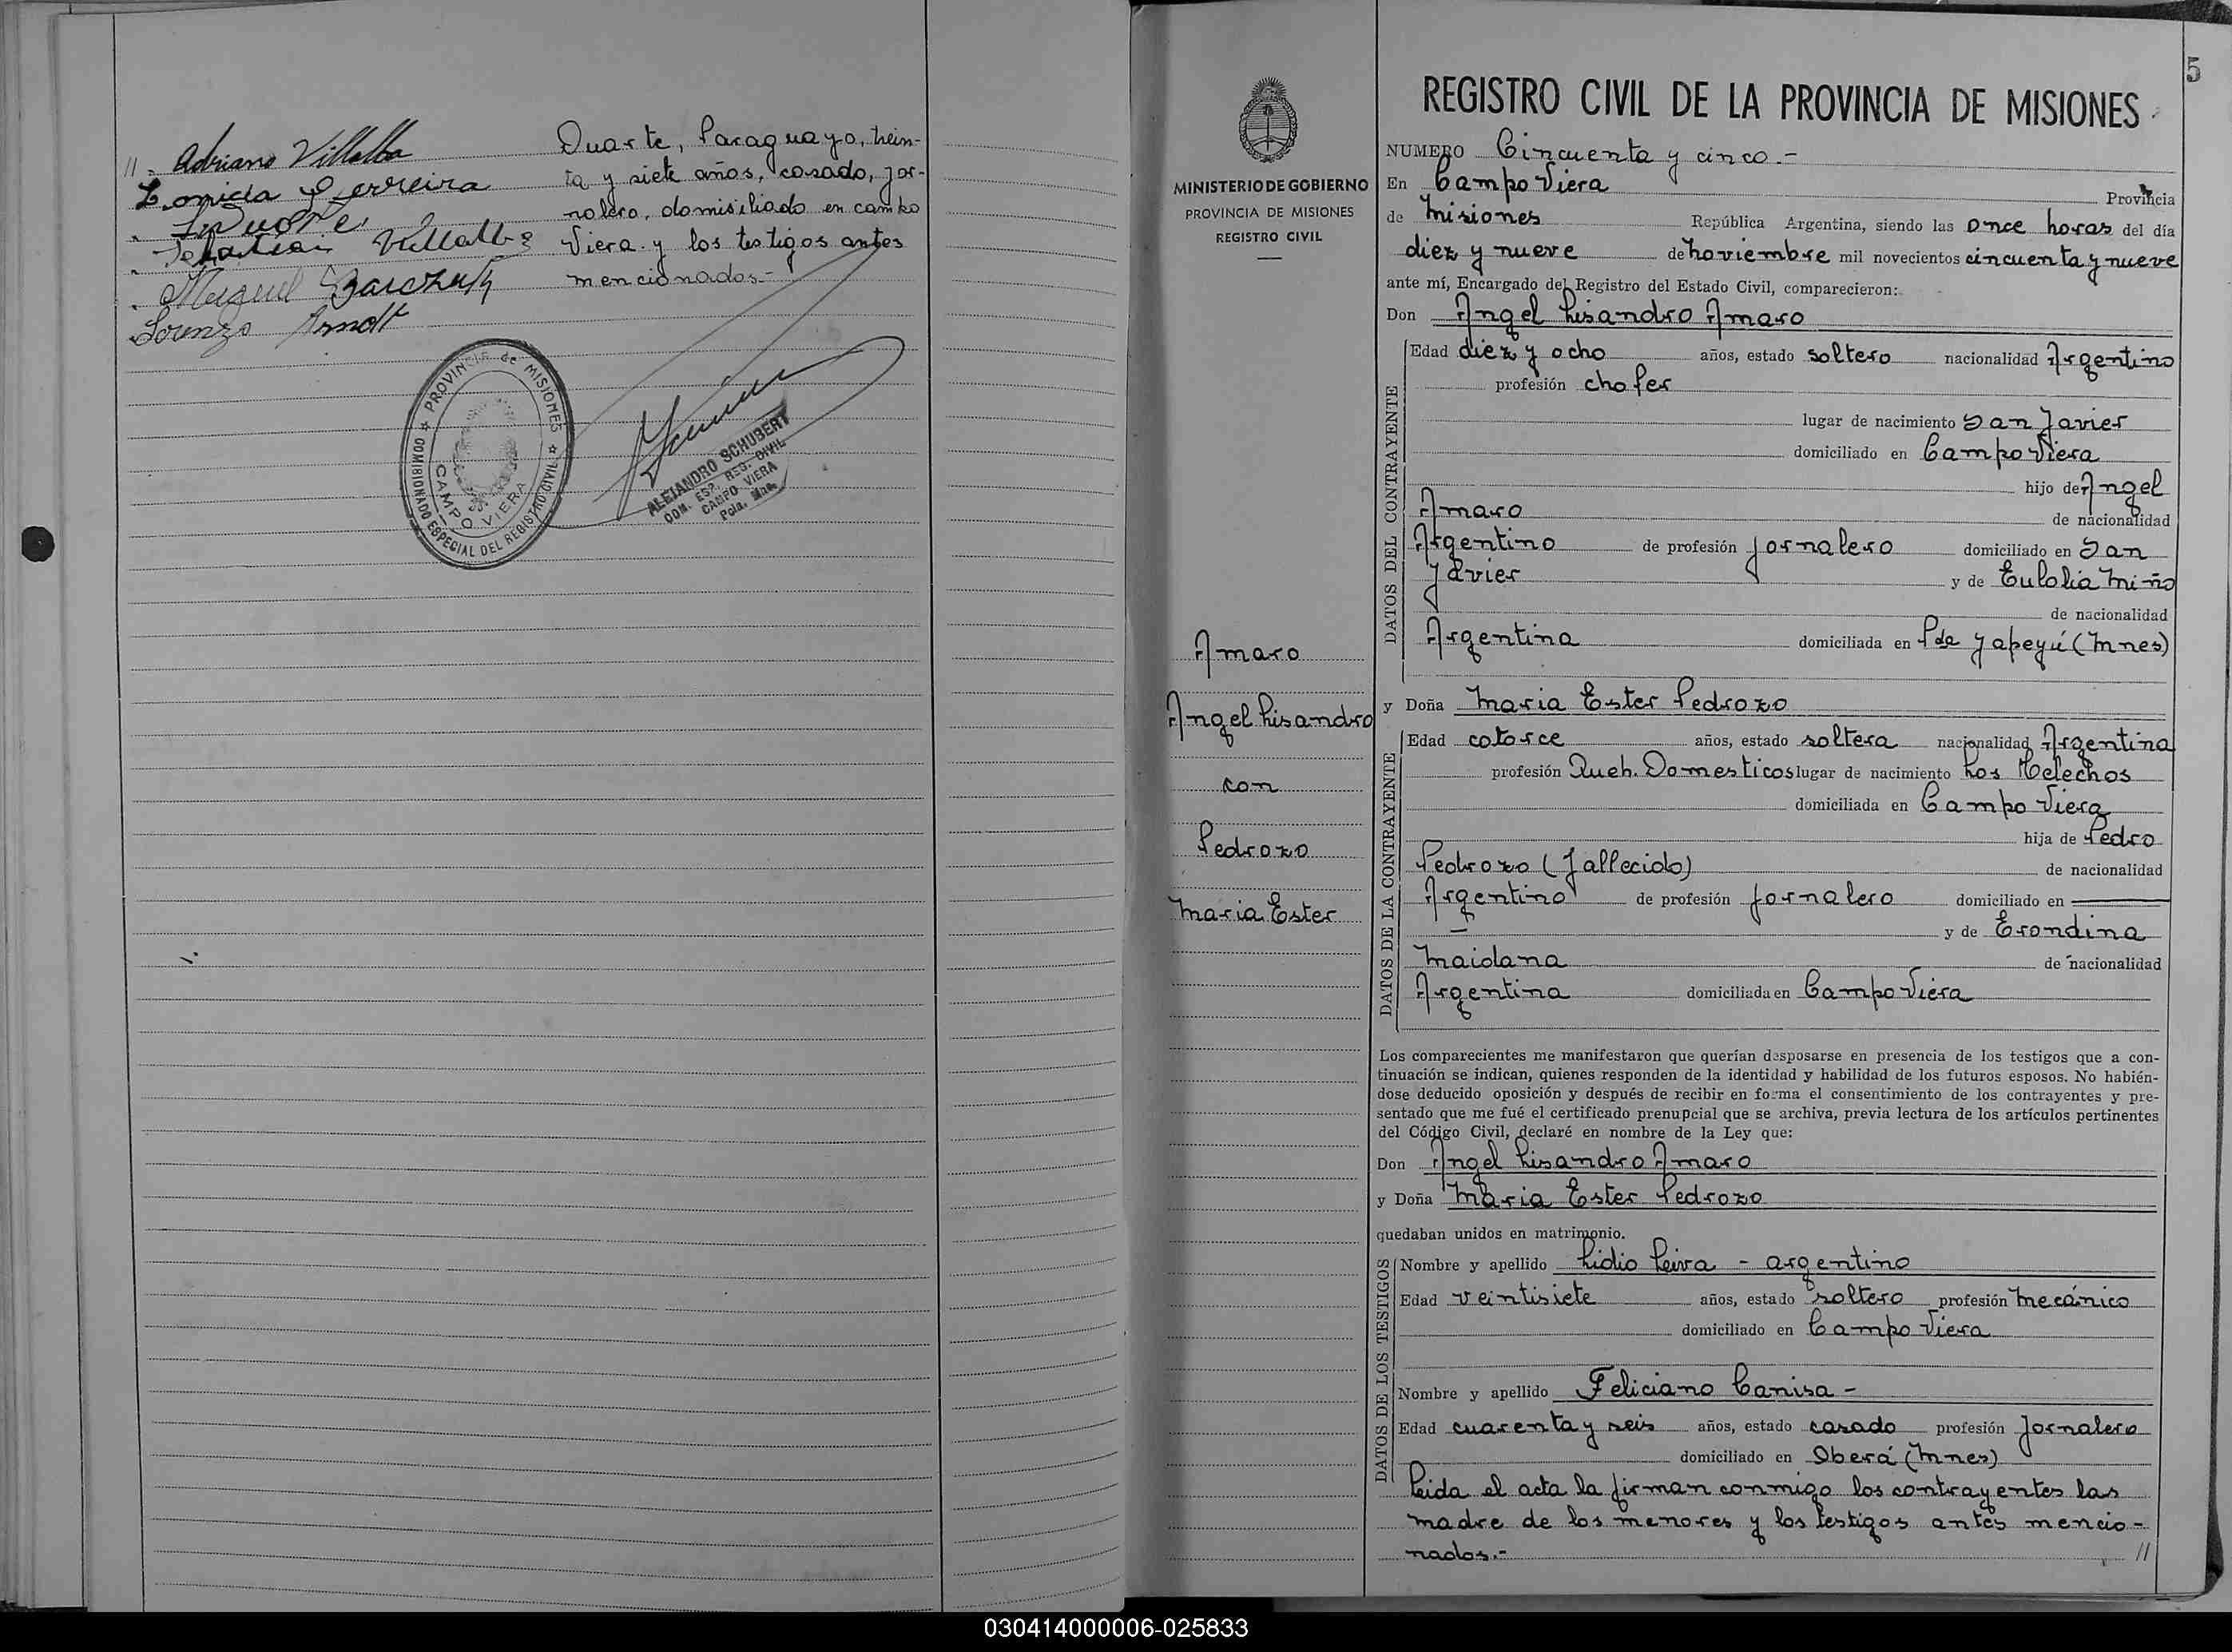 //. Adriano Villalba
Duarte, Paraguayo, trein-
ta y siete años, casado, jor-
nalero, domisiliado en campo
Viera y los testigos antes
mencionados.-
Villalba
Miguel
Lorenzo Arndt
PROVINCIA de MISIONES
COMISIONADO ESPECIAL DEL REGISTRO CIVIL
CAMPO VIERA
ALEJANDRO SCHUBERT
COM. ESP. REG. CIVIL
CAMPO VIERA
Pcia. Mnes.
5
MINISTERIO DE GOBIERNO
PROVINCIA DE MISIONES
REGISTRO CIVIL
Amaro
Angel Lisandro
con
Pedrozo
Maria Ester
REGISTRO CIVIL DE LA PROVINCIA DE MISIONES
NUMERO Cincuenta y cinco.-
En Campo Viera Provincia
de Misiones República Argentina, siendo las once horas del día
diez y nueve de noviembre mil novecientos cincuenta y nueve
ante mí, Encargado del Registro del Estado Civil, comparecieron:
Don Angel Lisandro Amaro
DATOS DEL CONTRAYENTE
Edad diez y ocho años, estado soltero nacionalidad Argentino
profesión chofer
lugar de nacimiento San Javier
domiciliado en Campo Viera
hijo de Angel
Amaro de nacionalidad
Argentino de profesión Jornalero domiciliado en San
Javier y de Eulolia Miño
de nacionalidad
Argentina domiciliada en Pde Yapeyú (Mnes)
y Doña Maria Ester Pedrozo
DATOS DE LA CONTRAYENTE
Edad catorce años, estado soltera nacionalidad Argentina
profesión Queh. Domesticos lugar de nacimiento Los Helechos
domiciliada en Campo Viera
hija de Pedro
Pedrozo (Fallecido) de nacionalidad
Argentino de profesión Jornalero domiciliado en ———
— y de Erondina
Maidana de nacionalidad
Argentina domiciliada en Campo Viera
Los comparecientes me manifestaron que querían desposarse en presencia de los testigos que a con-
tinuación se indican, quienes responden de la identidad y habilidad de los futuros esposos. No habién-
dose deducido oposición y después de recibir en forma el consentimiento de los contrayentes y pre-
sentado que me fué el certificado prenupcial que se archiva, previa lectura de los artículos pertinentes
del Código Civil, declaré en nombre de la Ley que:
Don Angel Lisandro Amaro
y Doña Maria Ester Pedrozo
quedaban unidos en matrimonio.
DATOS DE LOS TESTIGOS
Nombre y apellido Lidio Leiva - argentino
Edad veintisiete años, estado soltero profesión mecánico
domiciliado en Campo Viera
Nombre y apellido Feliciano Canisa -
Edad cuarenta y seis años, estado casado profesión Jornalero
domiciliado en Oberá (Mnes)
Leida el acta la firman conmigo los contrayentes las
madre de los menores y los testigos antes mencio-
nados.- //
030414000006-025833